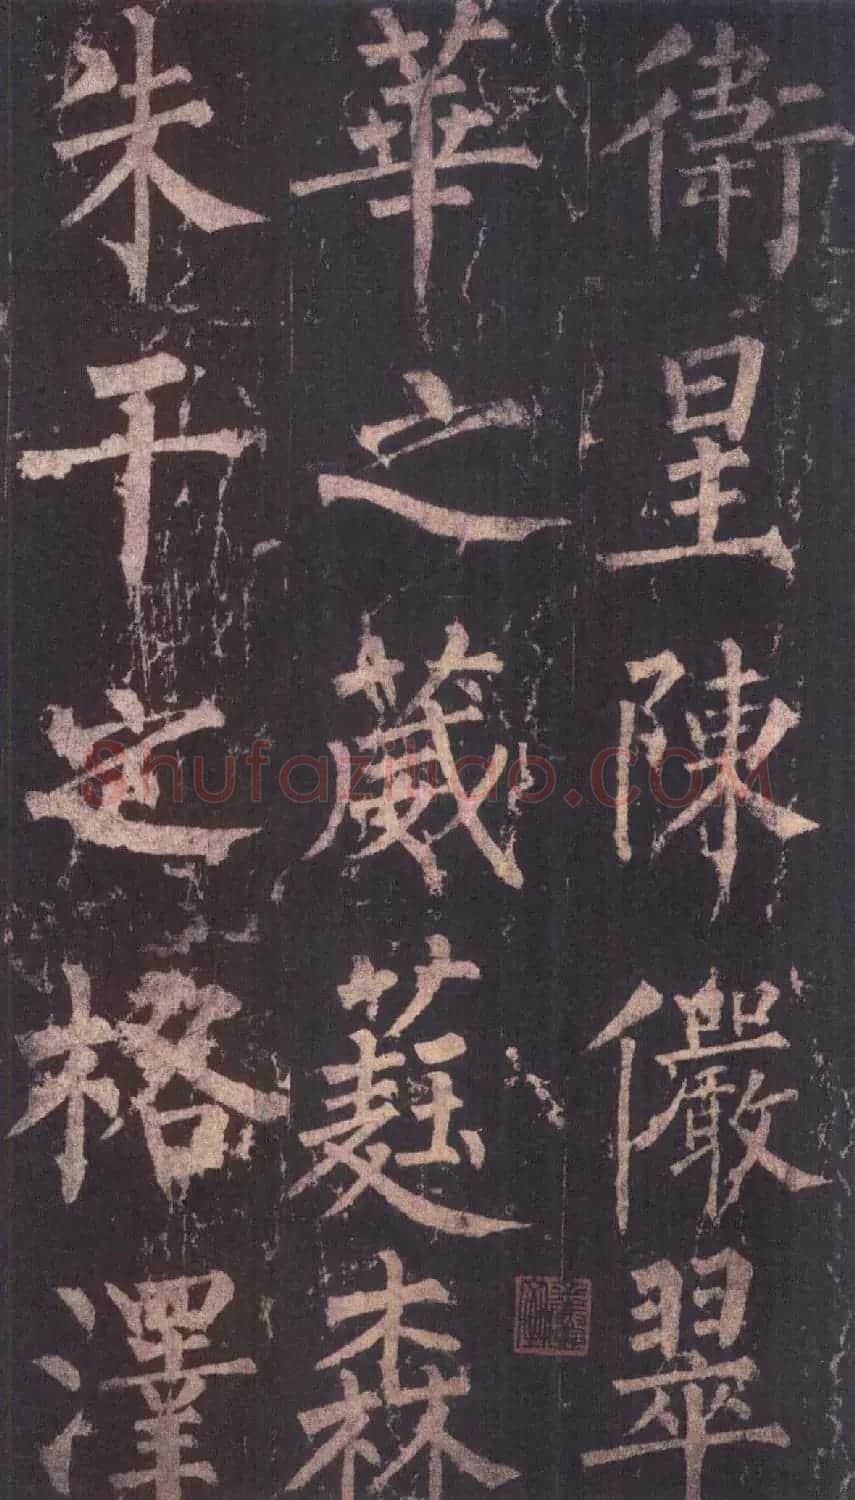 衛星陳儼翠
華之葳蕤森
朱干之格澤
Shufaziliao.COM